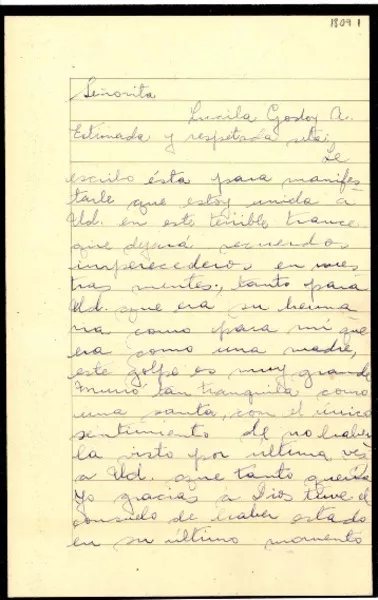 1809 1
Señorita
Lucila Godoy A.
Estimada y respetada srta;
Le
escribo ésta para manifes
tarle que estoy unida a
Ud. en este terrible trance
que dejará recuerdos
imperecederos en nues
tras mentes; tanto para
Ud. que era su herma
na como para mí que
era como una madre,
este golpe es muy grande
Murió tan tranquila como
una santa, con el único
sentimiento de no haber
la visto por última ves
a Ud. que tanto quería
Yo gracias a Dios tuve el
consuelo de haber estado
en su último momento